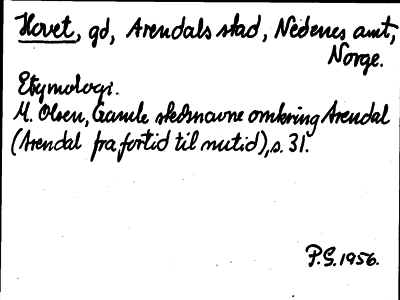 Hovet, gd, Arendals stad, Nedenes amt,
Norge.
Etymologi.
M. Olsen, Gamle stedsnavne omkring Arendal
(Arendal fra fortid til nutid), s. 31.
P.S. 1956.